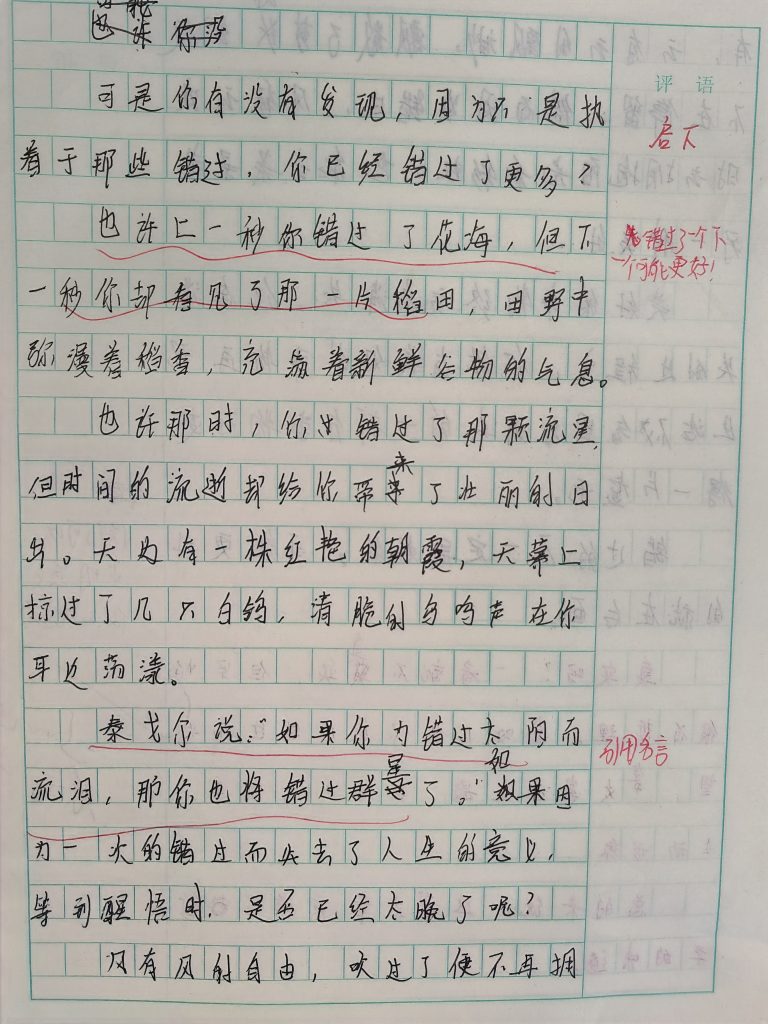 你没
评 语
可是你有没有发现，因为只是执
启下
着于那些错过，你已经错过了更多？
也许上一秒你错过了花海，但下
错过了一个下
一个可能更好！
一秒你却看见了那一片稻田，田野中
弥漫着稻香，充满着新鲜谷物的气息。
也许那时，你错过了那颗流星，
但时间的流逝却给你带来了壮丽的日
出。天边有一株红艳的朝霞，天幕上
掠过了几只白鸽，清脆的鸟鸣声在你
耳边荡漾。
泰戈尔说：“如果你为错过太阳而
引用名言
流泪，那你也将错过群星了。”如果因
为一次的错过而失去了人生的意义，
等到醒悟时，是否已经太晚了呢？
没有风的自由，吹过了便不再拥